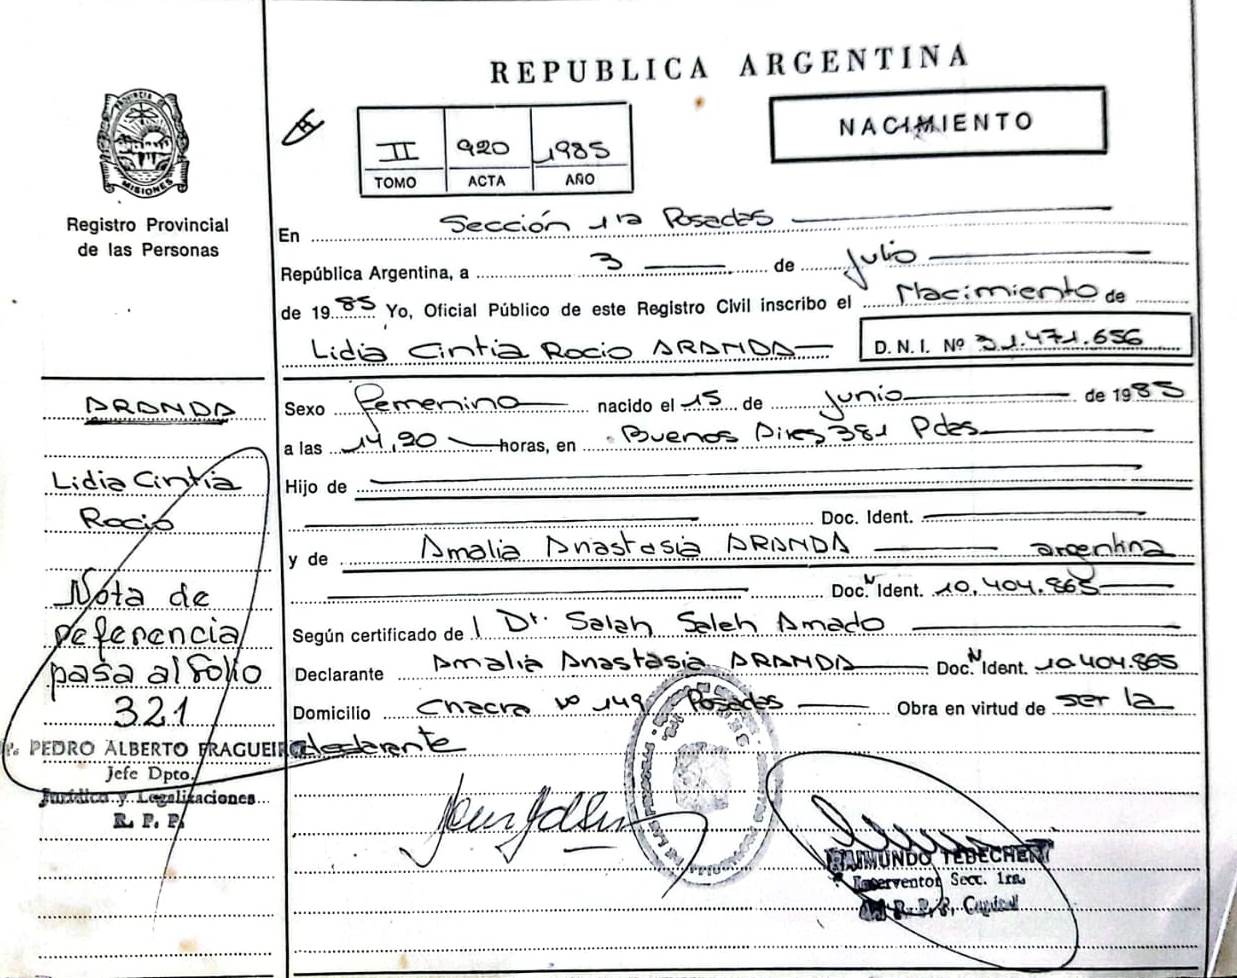 REPUBLICA ARGENTINA
NACIMIENTO
II 920 1985
TOMO ACTA AÑO
PROVINCIA DE MISIONES
Registro Provincial
de las Personas
En Sección 1ra Posadas
República Argentina, a 3 de Julio
de 1985 Yo, Oficial Público de este Registro Civil inscribo el Nacimiento de
Lidia Cintia Rocio ARANDA D. N. I. Nº 31.471.656
Sexo Femenino nacido el 15 de junio de 1985
a las 14,20 horas, en Buenos Aires 381 Pdas
Hijo de
Doc. Ident.
y de Amalia Anastasia ARANDA argentina
Doc. N Ident. 10.404.865
Según certificado de Dr. Salah Saleh Amado
Declarante Amalia Anastasia ARANDA Doc. N Ident. 10.404.865
Domicilio Chacra Nº 149 Posadas Obra en virtud de ser la
declarante
ARANDA
Lidia Cintia
Rocio
Nota de
referencia
pasa al folio
321
PEDRO ALBERTO FRAGUEIRO
Jefe Dpto.
Jurídico y Legalizaciones
R. P. P.
RAIMUNDO TEBECHERI
Interventor Secc. 1ra.
R. P. P. Capital